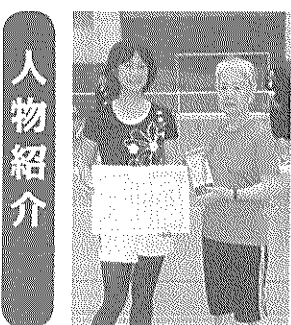 人物紹介